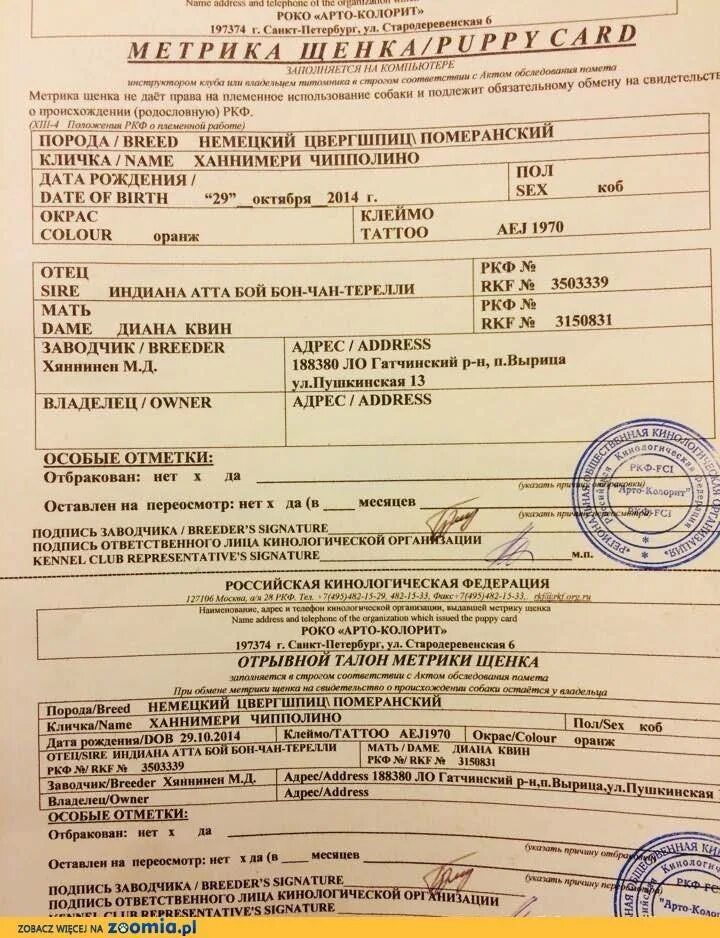 Name address and telephone of the organization which
РОКО «АРТО-КОЛОРИТ»
197374 г. Санкт-Петербург, ул. Стародеревенская 6
МЕТРИКА ЩЕНКА/PUPPY CARD
ЗАПОЛНЯЕТСЯ НА КОМПЬЮТЕРЕ
инструктором клуба или владельцем питомника в строгом соответствии с Актом обследования помета
Метрика щенка не даёт права на племенное использование собаки и подлежит обязательному обмену на свидетельств
о происхождении (родословную) РКФ.
(XIII-4 Положения РКФ о племенной работе)
ПОРОДА / BREED НЕМЕЦКИЙ ЦВЕРГШПИЦ\ ПОМЕРАНСКИЙ
КЛИЧКА / NAME ХАННИМЕРИ ЧИППОЛИНО
ДАТА РОЖДЕНИЯ / ПОЛ
DATE OF BIRTH “29”__октября__2014 г. SEX коб
ОКРАС КЛЕЙМО
COLOUR оранж TATTOO AEJ 1970
ОТЕЦ РКФ №
SIRE ИНДИАНА АТТА БОЙ БОН-ЧАН-ТЕРЕЛЛИ RKF № 3503339
МАТЬ РКФ №
DAME ДИАНА КВИН RKF № 3150831
ЗАВОДЧИК / BREEDER АДРЕС / ADDRESS
Хяннинен М.Д. 188380 ЛО Гатчинский р-н, п.Вырица
ул.Пушкинская 13
ВЛАДЕЛЕЦ / OWNER АДРЕС / ADDRESS
ОСОБЫЕ ОТМЕТКИ:
Отбракован: нет х да
(указать причину отбраковки)
Оставлен на пересмотр: нет х да (в ___ месяцев
(указать причину пересмотра)
ПОДПИСЬ ЗАВОДЧИКА / BREEDER'S SIGNATURE
ПОДПИСЬ ОТВЕТСТВЕННОГО ЛИЦА КИНОЛОГИЧЕСКОЙ ОРГАНИЗАЦИИ
KENNEL CLUB REPRESENTATIVE'S SIGNATURE м.п.
РЕГИОНАЛЬНАЯ ОБЩЕСТВЕННАЯ КИНОЛОГИЧЕСКАЯ ОРГАНИЗАЦИЯ
Российская Кинологическая Федерация
РКФ-FCI
"Арто-Колорит"
РКФ-FCI
РОССИЙСКАЯ КИНОЛОГИЧЕСКАЯ ФЕДЕРАЦИЯ
127106 Москва, а/я 28 РКФ. Тел. +7(495)482-15-29, 482-15-33, Факс+7(495)482-15-33. rkf@rkf.org.ru
Наименование, адрес и телефон кинологической организации, выдавшей метрику щенка
Name address and telephone of the organization which issued the puppy card
РОКО «АРТО-КОЛОРИТ»
197374 г. Санкт-Петербург, ул. Стародеревенская 6
ОТРЫВНОЙ ТАЛОН МЕТРИКИ ЩЕНКА
заполняется в строгом соответствии с Актом обследования помета
При обмене метрики щенка на свидетельство о происхождении собаки остаётся у владельца
Порода/Breed НЕМЕЦКИЙ ЦВЕРГШПИЦ\ ПОМЕРАНСКИЙ
Кличка/Name ХАННИМЕРИ ЧИППОЛИНО Пол/Sex коб
Дата рождения/DOB 29.10.2014 Клеймо/TATTOO AEJ1970 Окрас/Colour оранж
ОТЕЦ/SIRE ИНДИАНА АТТА БОЙ БОН-ЧАН-ТЕРЕЛЛИ МАТЬ / DAME ДИАНА КВИН
РКФ №/ RKF № 3503339 РКФ №/ RKF № 3150831
Заводчик/Breeder Хяннинен М.Д. Адрес/Address 188380 ЛО Гатчинский р-н,п.Вырица,ул.Пушкинская 1
Владелец/Owner Адрес/Address
ОСОБЫЕ ОТМЕТКИ:
Отбракован: нет х да
(указать причину отбраковки)
Оставлен на пересмотр: нет х да (в ___ месяцев
(указать причину пересмотра)
ПОДПИСЬ ЗАВОДЧИКА / BREEDER'S SIGNATURE
ПОДПИСЬ ОТВЕТСТВЕННОГО ЛИЦА КИНОЛОГИЧЕСКОЙ ОРГАНИЗАЦИИ
KENNEL CLUB REPRESENTATIVE'S SIGNATURE
РКФ-FC
"Арто-Колор
ZOBACZ WIĘCEJ NA zoomia.pl